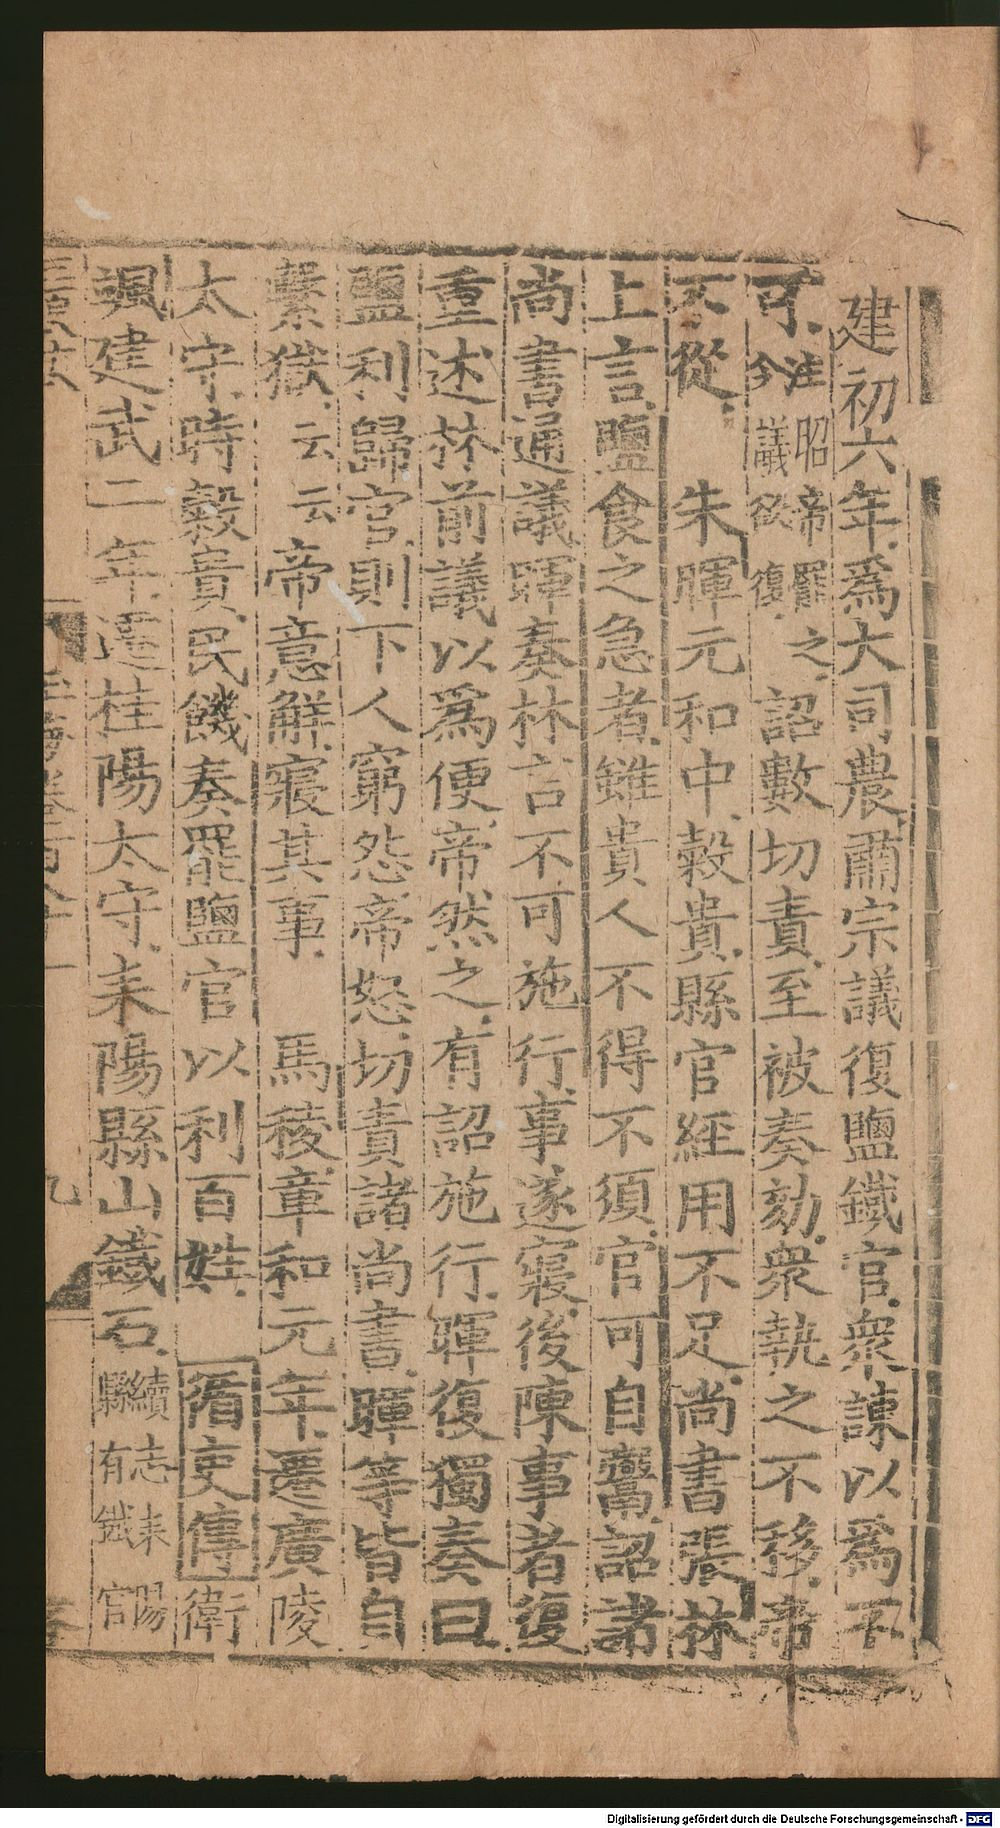 建初六年爲大司農肅宗議復鹽鐵官衆諫以爲不
可注昭帝罷之今議欲復詔數切責至被奏劾衆執之不移帝
不從 朱暉元和中穀貴縣官經用不足尚書張林
上言鹽食之急者雖貴人不得不須官可自鬻詔諸
尚書通議暉奏林言不可施行事遂寢後陳事者復
重述林前議以爲便帝然之有詔施行暉復獨奏曰
鹽利歸官則下人窮怨帝怒切責諸尚書暉等皆自
繫獄云云帝意解寢其事 馬稜章和元年遷廣陵
太守時穀貴民饑奏罷鹽官以利百姓 循吏傳衛
颯建武二年遷桂陽太守耒陽縣山鐵石續志耒陽縣有鐵官
九
Digitalisierung gefördert durch die Deutsche Forschungsgemeinschaft - DFG